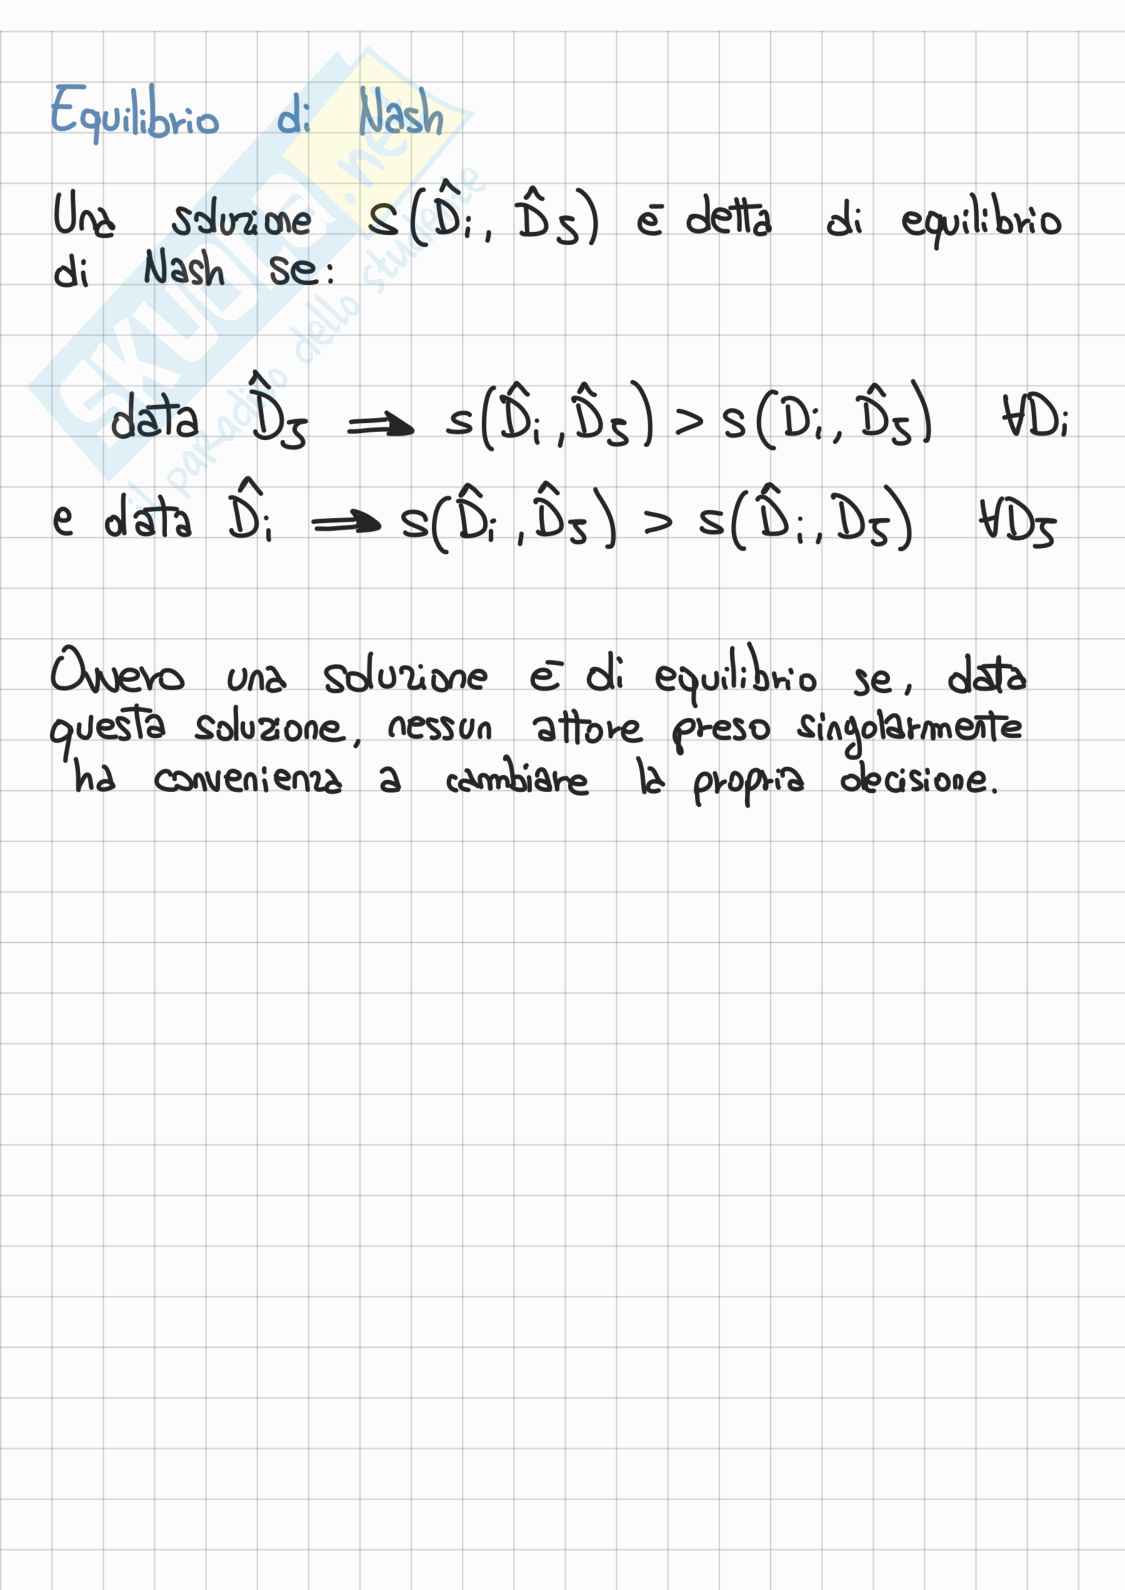 Equilibrio di Nash
Una soluzione S(D̂i, D̂j) è detta di equilibrio
di Nash se:
data D̂j ⟹ s(D̂i, D̂j) > s(Di, D̂j) ∀Di
e data D̂i ⟹ s(D̂i, D̂j) > s(D̂i, Dj) ∀Dj
Ovvero una soluzione è di equilibrio se, data
questa soluzione, nessun attore preso singolarmente
ha convenienza a cambiare la propria decisione.
SKUOLA.net
il paradiso dello studente